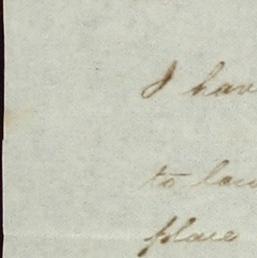 I hav
to law
place